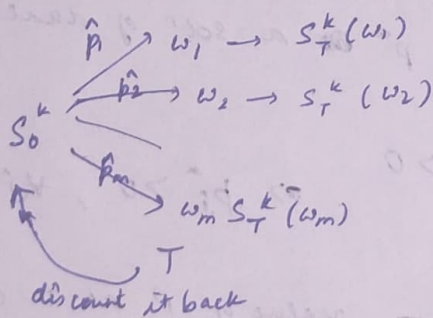 p̂₁ ω₁ → S_T^k (ω₁)
p̂₂ ω₂ → S_T^k (ω₂)
S₀^k
p̂ₘ
ωₘ S_T^k (ωₘ)
T
discount it back